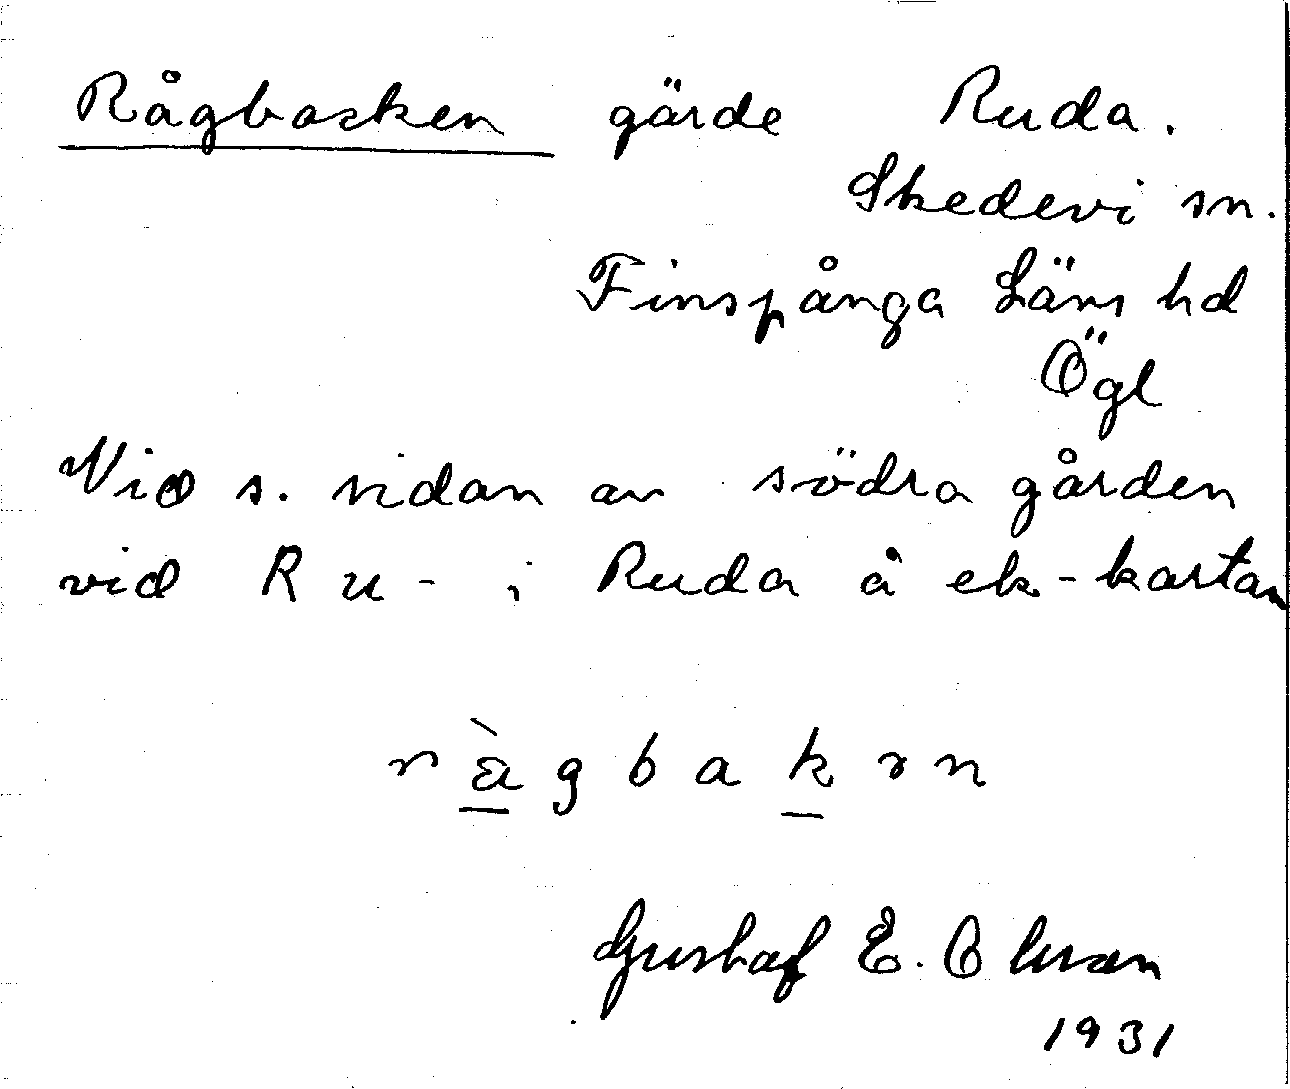 Rågbacken gärde Ruda.
Skedevi sn.
Finspånga Läns hd
Ögl
Vid s. sidan av södra gården
vid Ru- i Ruda å ek-kartan
Gustaf E. Olsson
1931